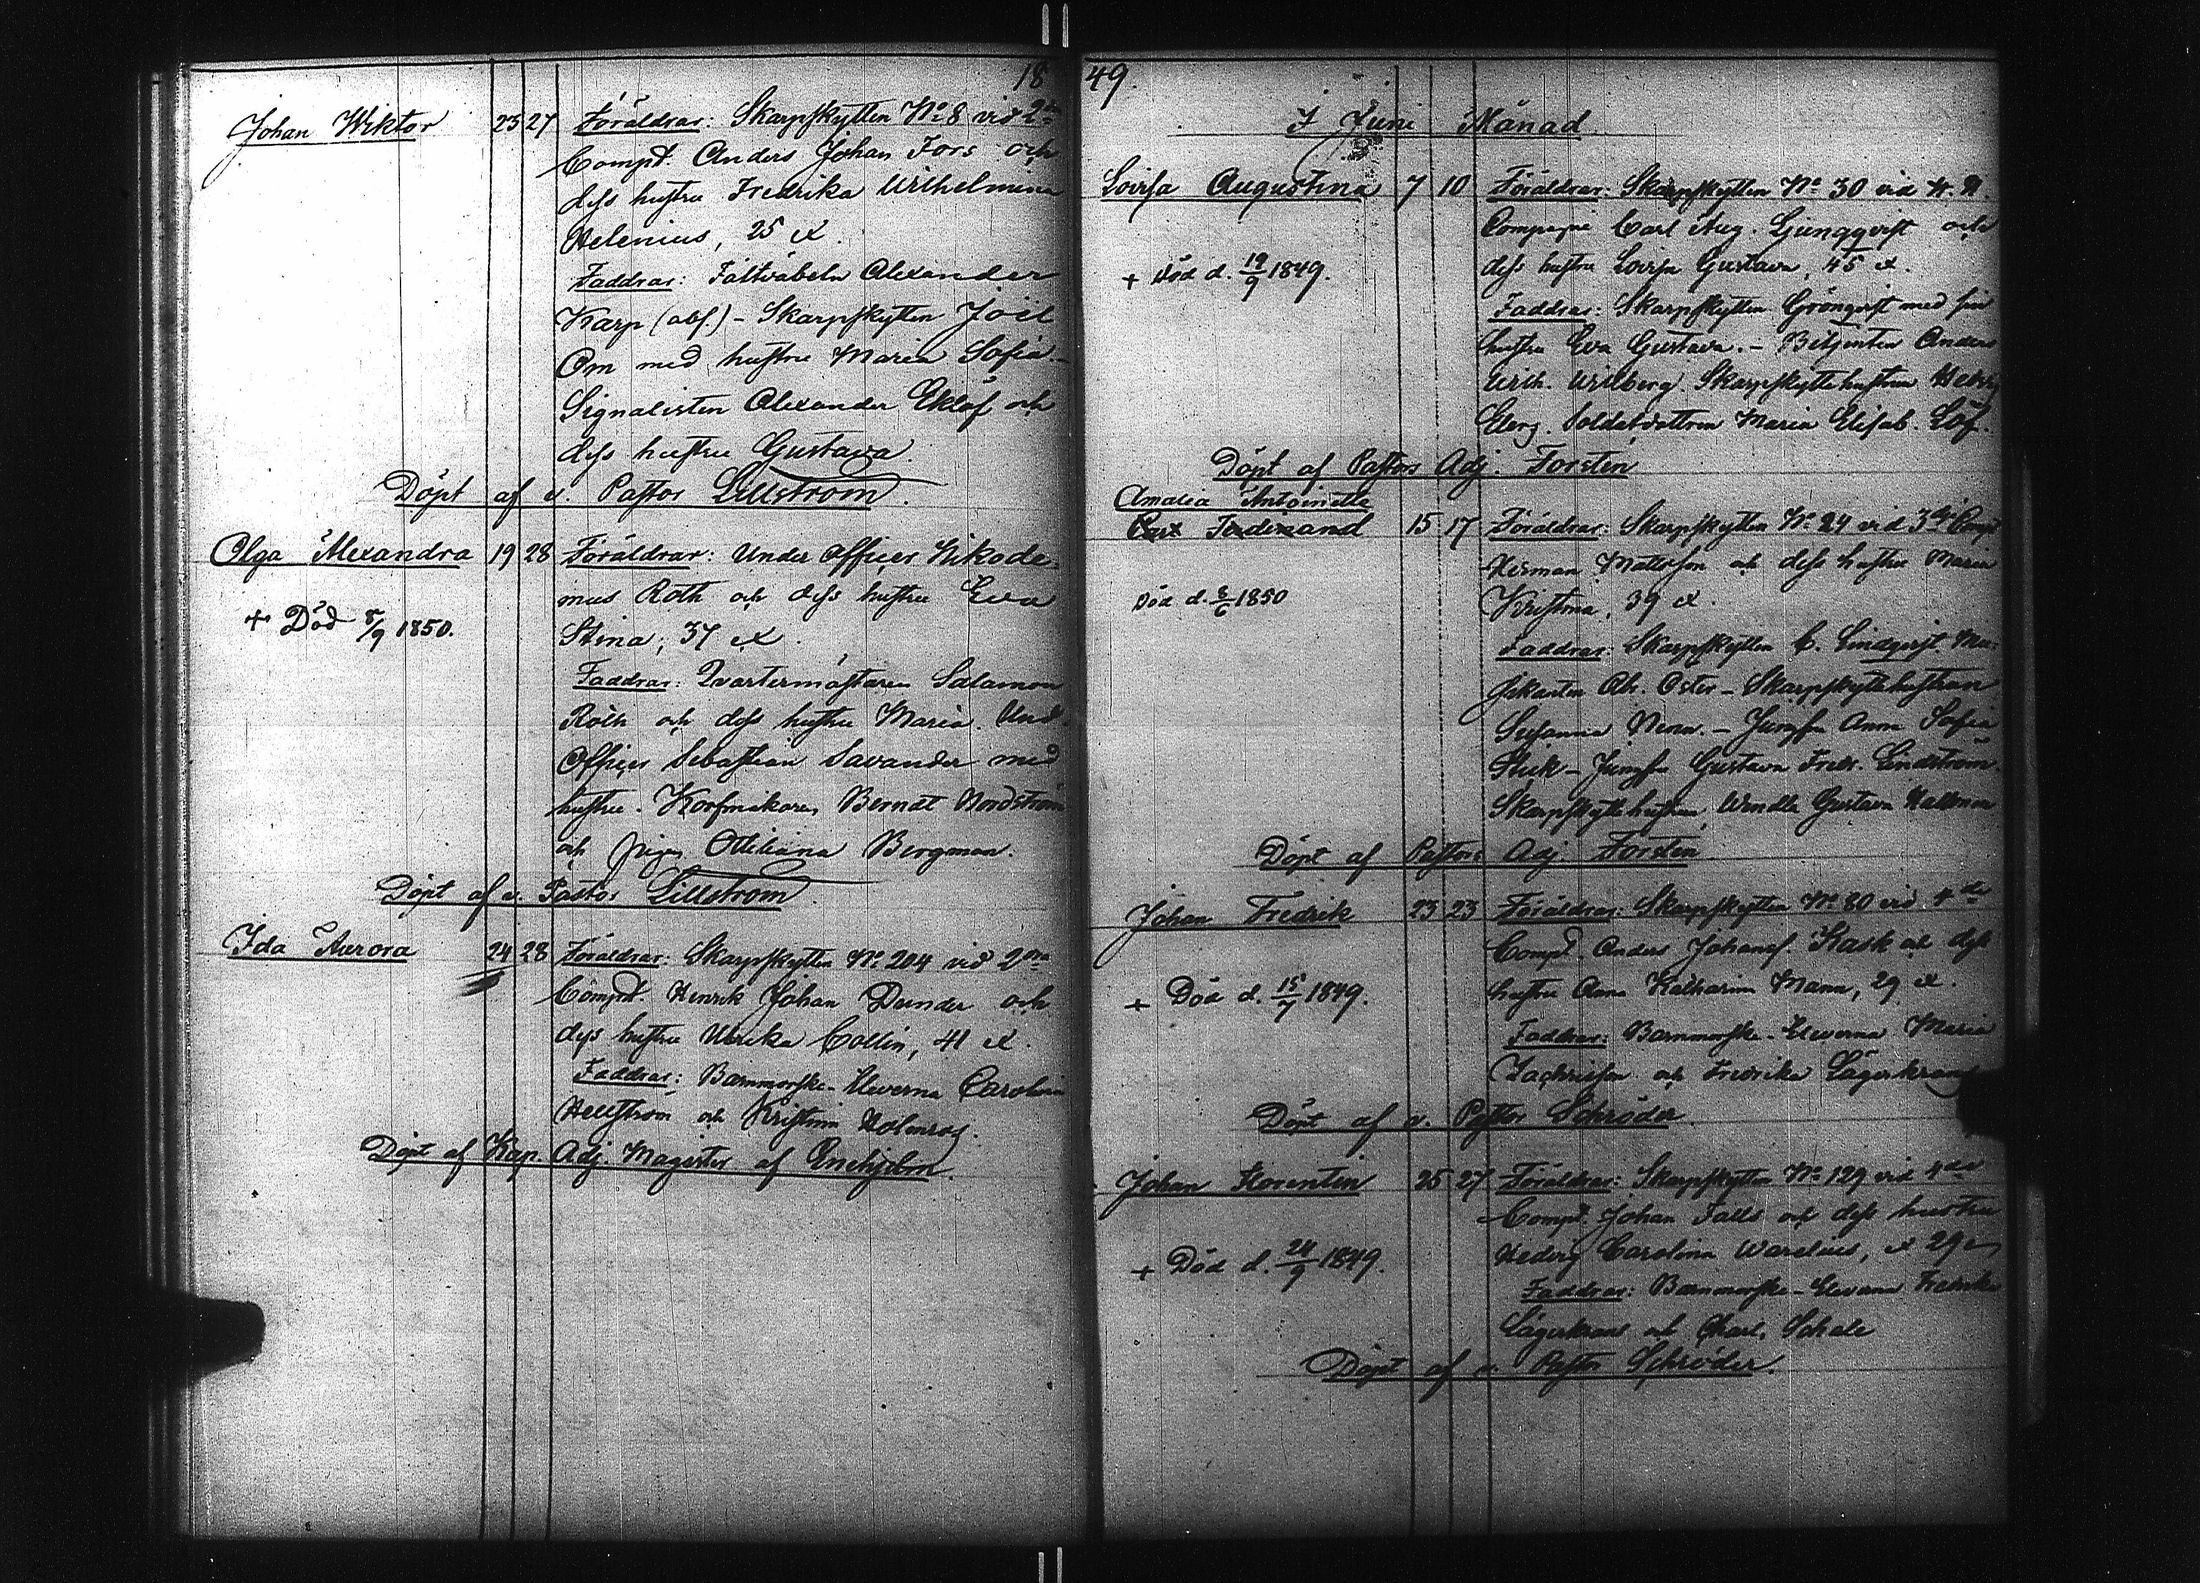 18
Johan Wiktor 23 27 Föräldrar: Skarpskytten No 8 vid 2dra
Compt. Anders Johan Fors och
dess hustru Fredrika Wilhelmina
Helenius, 25 et.
Faddrar: Fältväbeln Alexander
Karp (abs.) - Skarpskytten Joel
Om med hustru Maria Sofia -
Signalisten Alexander Eklöf och
dess hustru Gustava.
Döpt af v. Pastor Lillström.
Olga Alexandra 19 28 Föräldrar: Under Officer Nikode-
mus Roth och dess hustru Eva
+ Död 5/9 1850.
Stina, 37 et.
Faddrar: Qvartermästaren Salamon
Roth och dess hustru Maria. Und.
Officer Sebastian Savander med
hustru. Korfmakaren Bernat Nordström
och pigan Ottiliana Bergman.
Döpt af v. Pastor Lillström.
Ida Aurora 24 28 Föräldrar: Skarpskytten No 204 vid 2dra
Compt. Henrik Johan Dunder och
dess hustru Ulrika Collin, 41 et.
Faddrar: Barnmorske-Eleverna Carolina
Hellström och Kristina
Döpt af Kap. Adj. Magister af Enehjelm.
49.
I Juni Månad
Lovisa Augustina 7 10 Föräldrar: Skarpskytten No 30 vid
Compagnie Carl Aug. Ljungqvist och
dess hustru Lovisa Gustava, 45 et.
+ Död d. 19/9 1849.
Faddrar: Skarpskytten Grönqvist med sin
hustru Eva Gustava. - Betjenten Anders
Wilh. Wilberg. Skarpskyttehustrun
Elerg. Soldatdottren Maria Elisab. Löf.
Döpt af Pastors Adj. Forstén
Amalia Antoinetta
Carl Ferdinand 15 17 Föräldrar: Skarpskytten No 24 vid 3dje Comp.
Herman Mattsson och dess hustru Maria
Död d. 8/6 1850
Kristina, 39 et.
Faddrar: Skarpskytten C. Lindqvist. Mu-
sikanten Abr. Öster - Skarpskyttehustrun
Susanna - Jungfru Anna Sofia
- Jungfru Gustava Fredr. Lindström.
Skarpskyttehustrun Wendla Gustava
Döpt af Pastors Adj Forstén
Johan Fredrik 23 23 Föräldrar: Skarpskytten No 80 vid 4de
Compt. Anders Johanss. Kask och dess
hustru Anna Katharina Mann, 29 et.
+ Död d. 15/7 1849.
Faddrar: Barnmorske-Eleverna Maria
Zachrisson och Fredrika Lägerkrans
Döpt af v. Pastor Schröder
Johan Florentin 25 27 Föräldrar: Skarpskytten No 129 vid 4de
Compt. Johan Falls och dess hustru
Hedvig Carolina Warelius, et 29
+ Död d. 24/9 1849.
Faddrar: Barnmorske-Eleverna Fredrika
Lägerkrans och Charl. Schale
Döpt af v. Pastor Schröder.